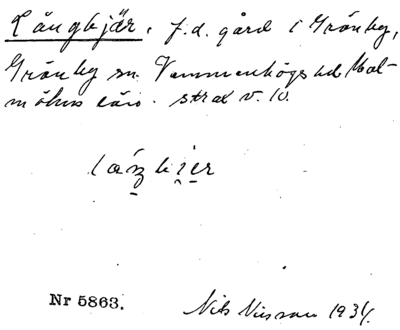 Långkjär, f.d. gård i Grönby,
Grönby sn. Vemmenhögs hd Mal-
möhus län. strax v. 10.
Nr 5863.
Nils Nilsson 1934.